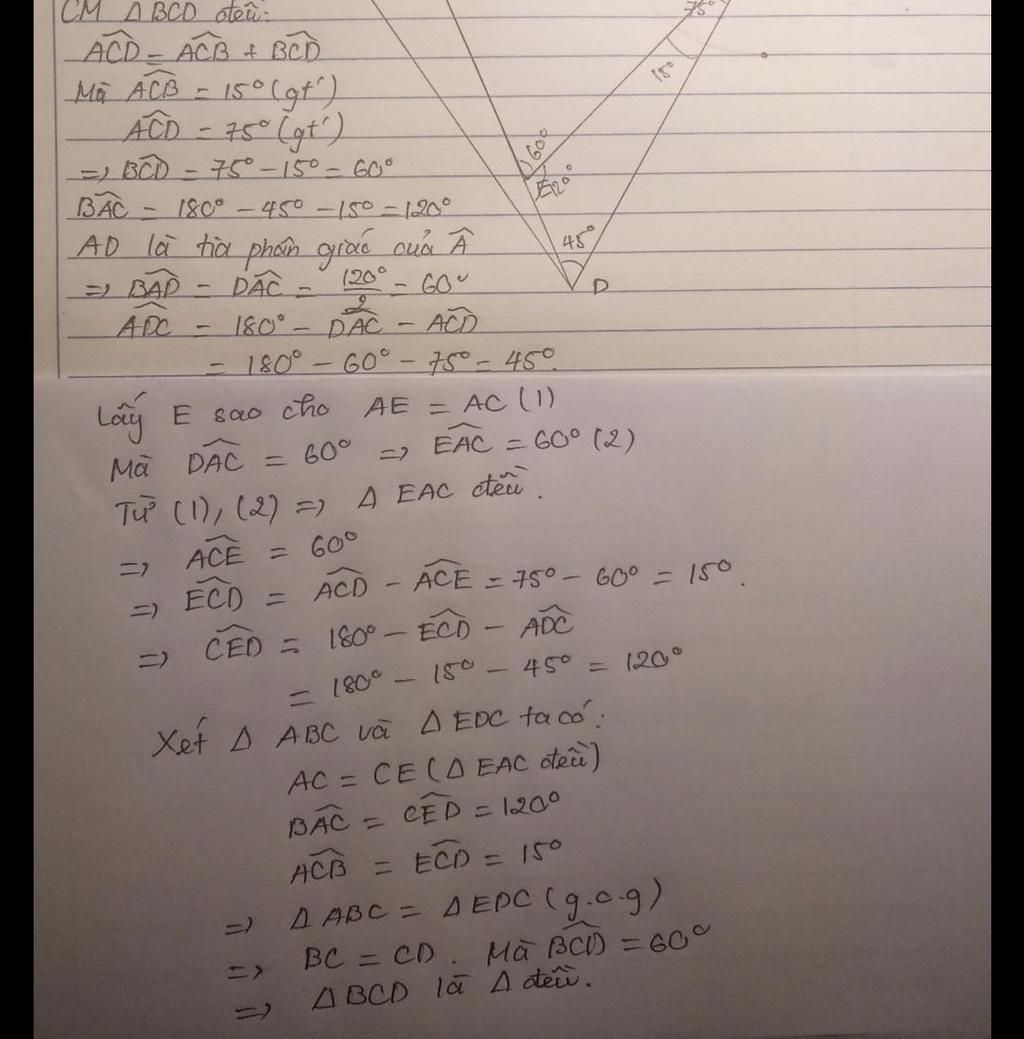 CM Δ BCD đều:
ACD̂ = ACB̂ + BCD̂
Mà ACB̂ = 15° (gt)
ACD̂ = 75° (gt)
=> BCD̂ = 75° - 15° = 60°
BAĈ = 180° - 45° - 15° = 120°
AD là tia phân giác của Â
=> BAD̂ = DAĈ = 120°/2 = 60°
ADĈ = 180° - DAĈ - ACD̂
= 180° - 60° - 75° = 45°.
75°
15°
60°
E 120°
45°
D
Lấy E sao cho AE = AC (1)
Mà DAĈ = 60° => EAĈ = 60° (2)
Từ (1), (2) => Δ EAC đều.
=> ACÊ = 60°
=> ECD̂ = ACD̂ - ACÊ = 75° - 60° = 15°.
=> CED̂ = 180° - ECD̂ - ADĈ
= 180° - 15° - 45° = 120°
Xét Δ ABC và Δ EDC ta có:
AC = CE (Δ EAC đều)
BAĈ = CED̂ = 120°
ACB̂ = ECD̂ = 15°
=> Δ ABC = Δ EDC (g.c.g)
=> BC = CD. Mà BCD̂ = 60°
=> Δ BCD là Δ đều.